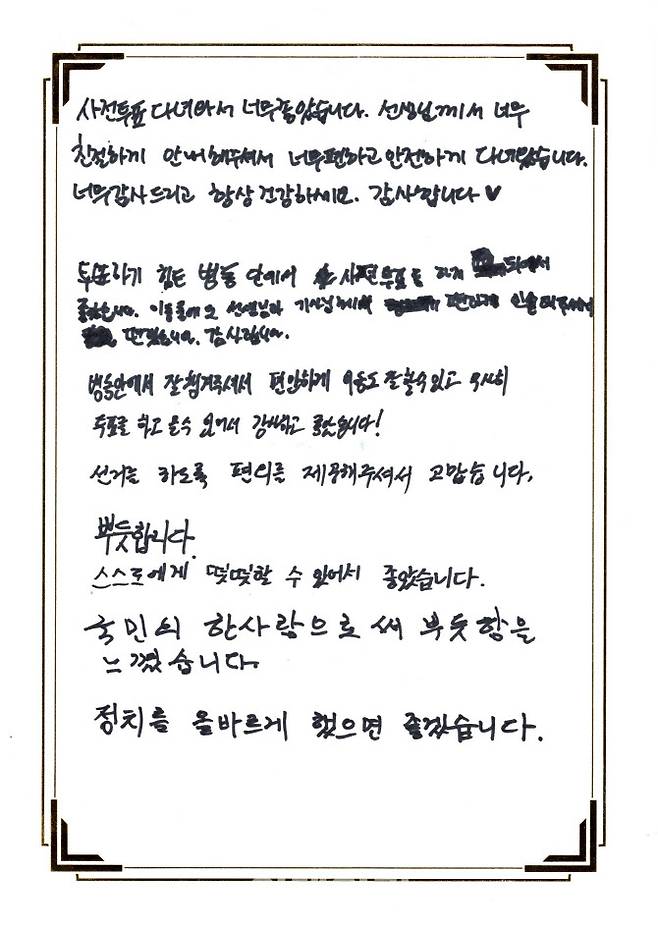 사전투표 다녀와서 너무좋았습니다. 선생님께서 너무
친절하게 안내해주셔서 너무편하고 안전하게 다녀왔습니다.
너무감사드리고 항상 건강하세요. 감사합니다 ♥
투표하기 힘든 병동 안에서 사전투표를 하게 되어서
좋았습니다. 이동할때 선생님과 기사님께서 편하게
감사합니다.
병동안에서 잘챙겨주셔서 편안하게 이동도 잘할수있고 무사히
투표를 하고 올수 있어서 감사하고 좋았습니다!
선거를 하도록 편의를 제공해주셔서 고맙습니다.
뿌듯합니다.
스스로에게 떳떳할 수 있어서 좋았습니다.
국민의 한사람으로써 뿌듯함을
느꼈습니다.
정치를 올바르게 했으면 좋겠습니다.